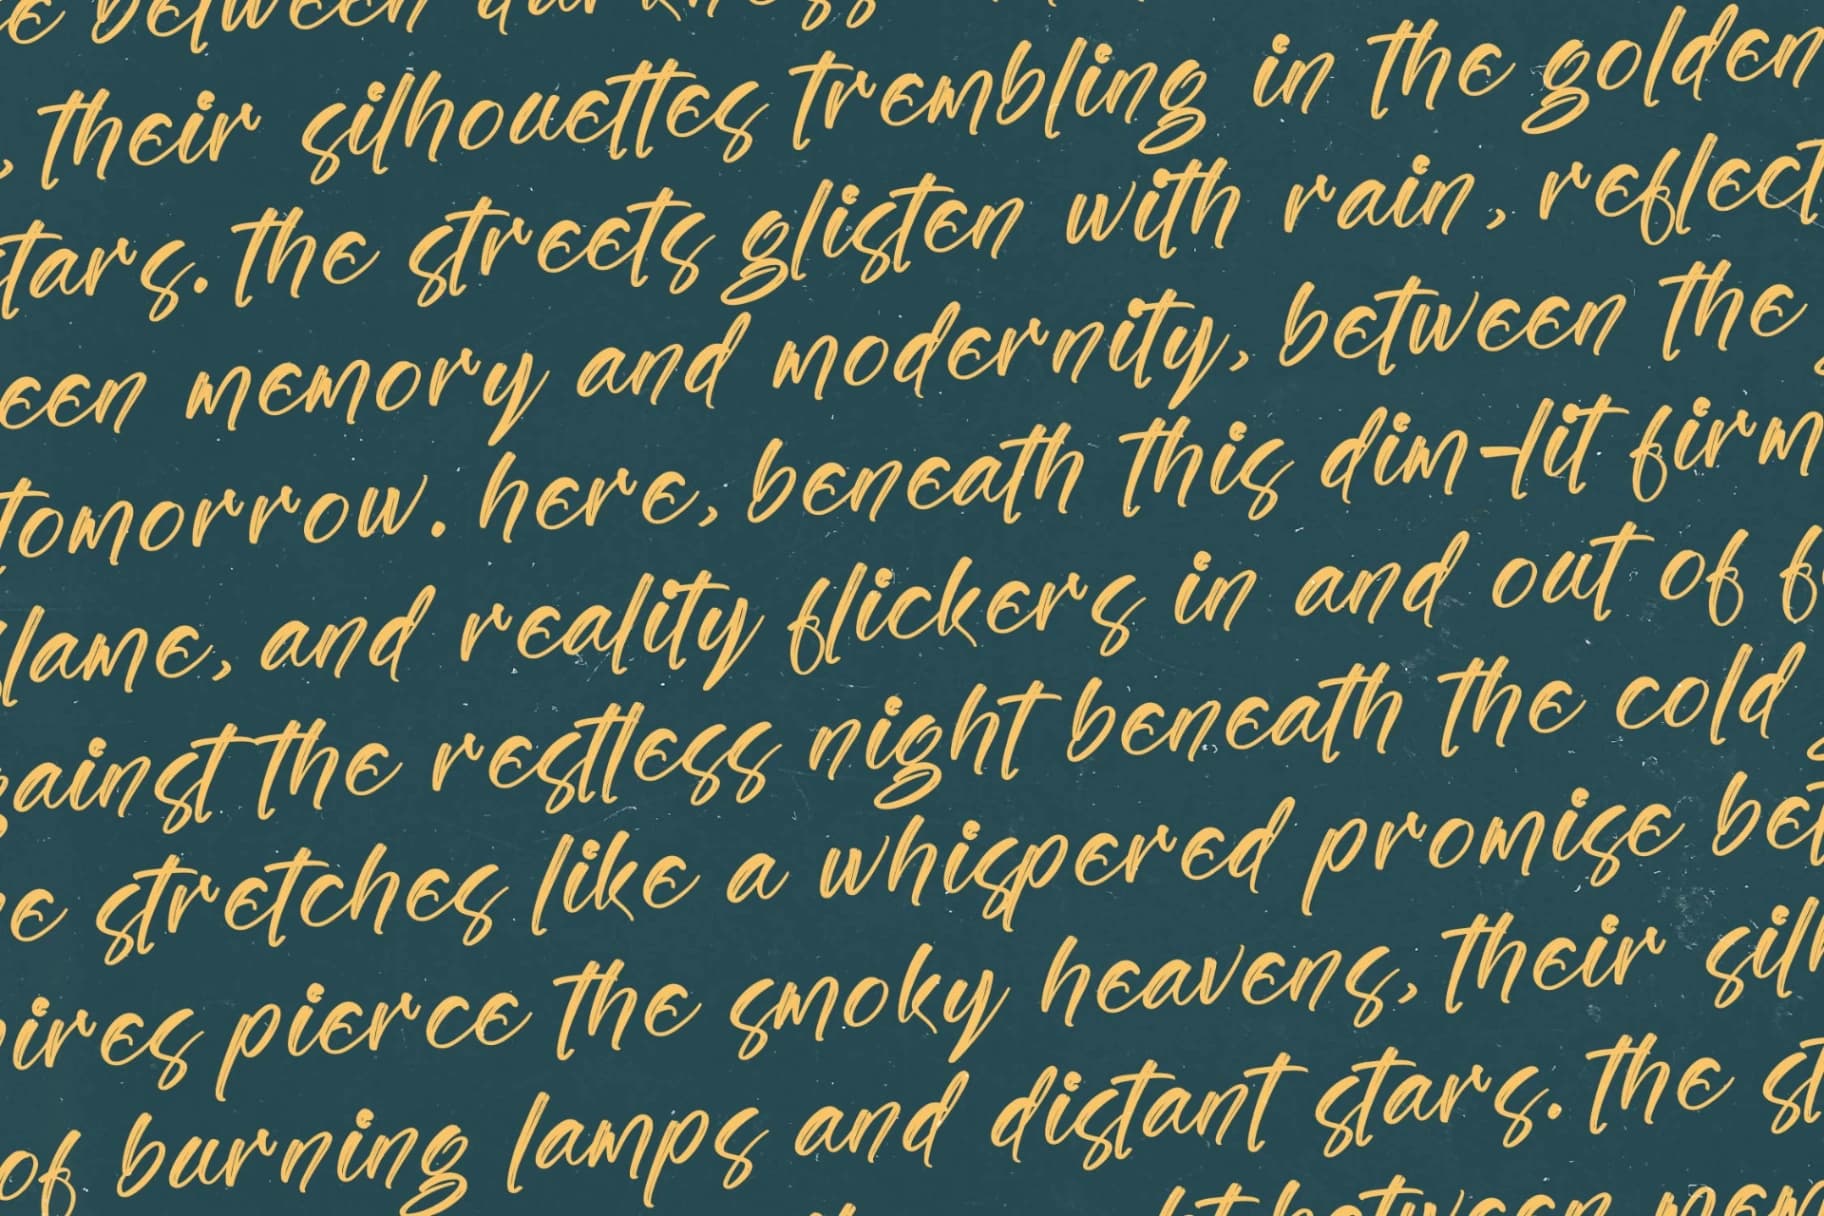 between darkness
, their silhouettes trembling in the golden
stars. the streets glisten with rain, reflect
een memory and modernity, between the
tomorrow. here, beneath this dim-lit firm
flame, and reality flickers in and out of f
ainst the restless night beneath the cold
e stretches like a whispered promise bet
pires pierce the smoky heavens, their silh
of burning lamps and distant stars. the st
between mem